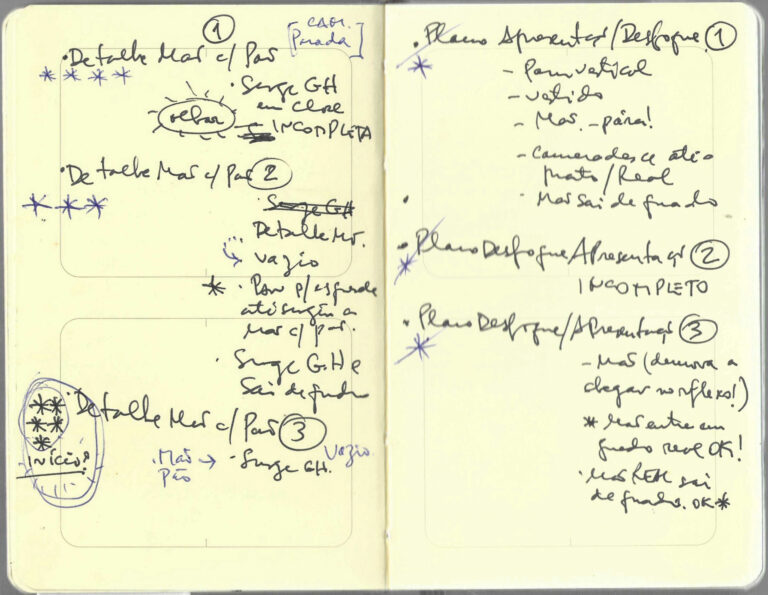 1
[CAM. Parada]
• Detalhe Mão c/ Pão
****
• Surge GH
em close
olhar
INCOMPLETA
• Detalhe Mão c/ Pão 2
***
Surge GH
Detalhe
vazio
* • Pan p/ esquerda
até surgir a
Mão c/ pão.
• Surge GH e
Sai de quadro
*****
INÍCIO?
• Detalhe Mão c/ Pão 3
Mão
Pão
→ • Surge GH. Vazio
• Plano Apresentaç/Desfoque 1
*
- Pan vertical
- vestido
- Mão - pára!
- Camera desce até o
prato/Real
• Mão sai de quadro
• Plano Desfoque/Apresentaç 2
*
INCOMPLETO
• Plano Desfoque/Apresentaç 3
*
- Mão (demora a
chegar no reflexo!)
* Mão entra em
quadro real OK!
• Mão REAL sai
de quadro. OK *